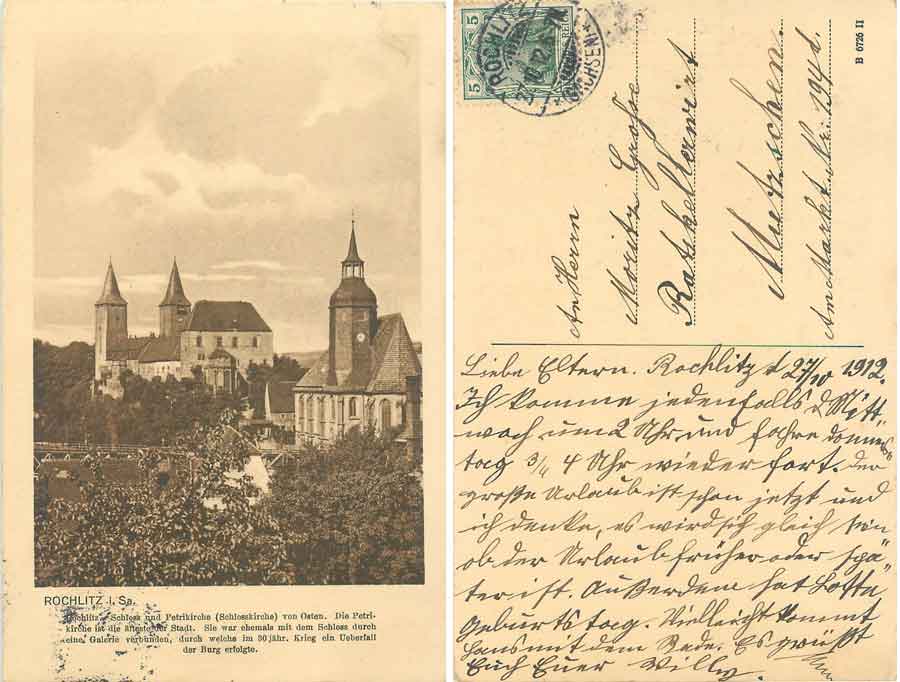 ROCHLITZ i. Sa.
Rochlitz. Schloss und Petrikirche (Schlosskirche) von Osten. Die Petri-
kirche ist die älteste der Stadt. Sie war ehemals mit dem Schloss durch
eine Galerie verbunden, durch welche im 30jähr. Krieg ein Ueberfall
der Burg erfolgte.
5 5
REICH
ROCHLITZ
27 10 12
(SACHSEN)
B 6726 II
An Herrn
Moritz Große
Ratskellerwirt
Mutzschen.
Am Markt. Nr. 194d.
Liebe Eltern. Rochlitz d 27/10 1912.
Ich komme jedenfalls d. Mitt-
woch um 2 Uhr und fahre Donners
tag 3/4 4 Uhr wieder fort. Der
große Urlaub ist schon jetzt und
ich denke, es wird sich gleich sein
ob der Urlaub früher oder spä-
ter ist. Außerdem hat Lotte
Geburtstag. Vielleicht kommt
Hans mit dem Rade. Es grüßt
Euch Euer Willy